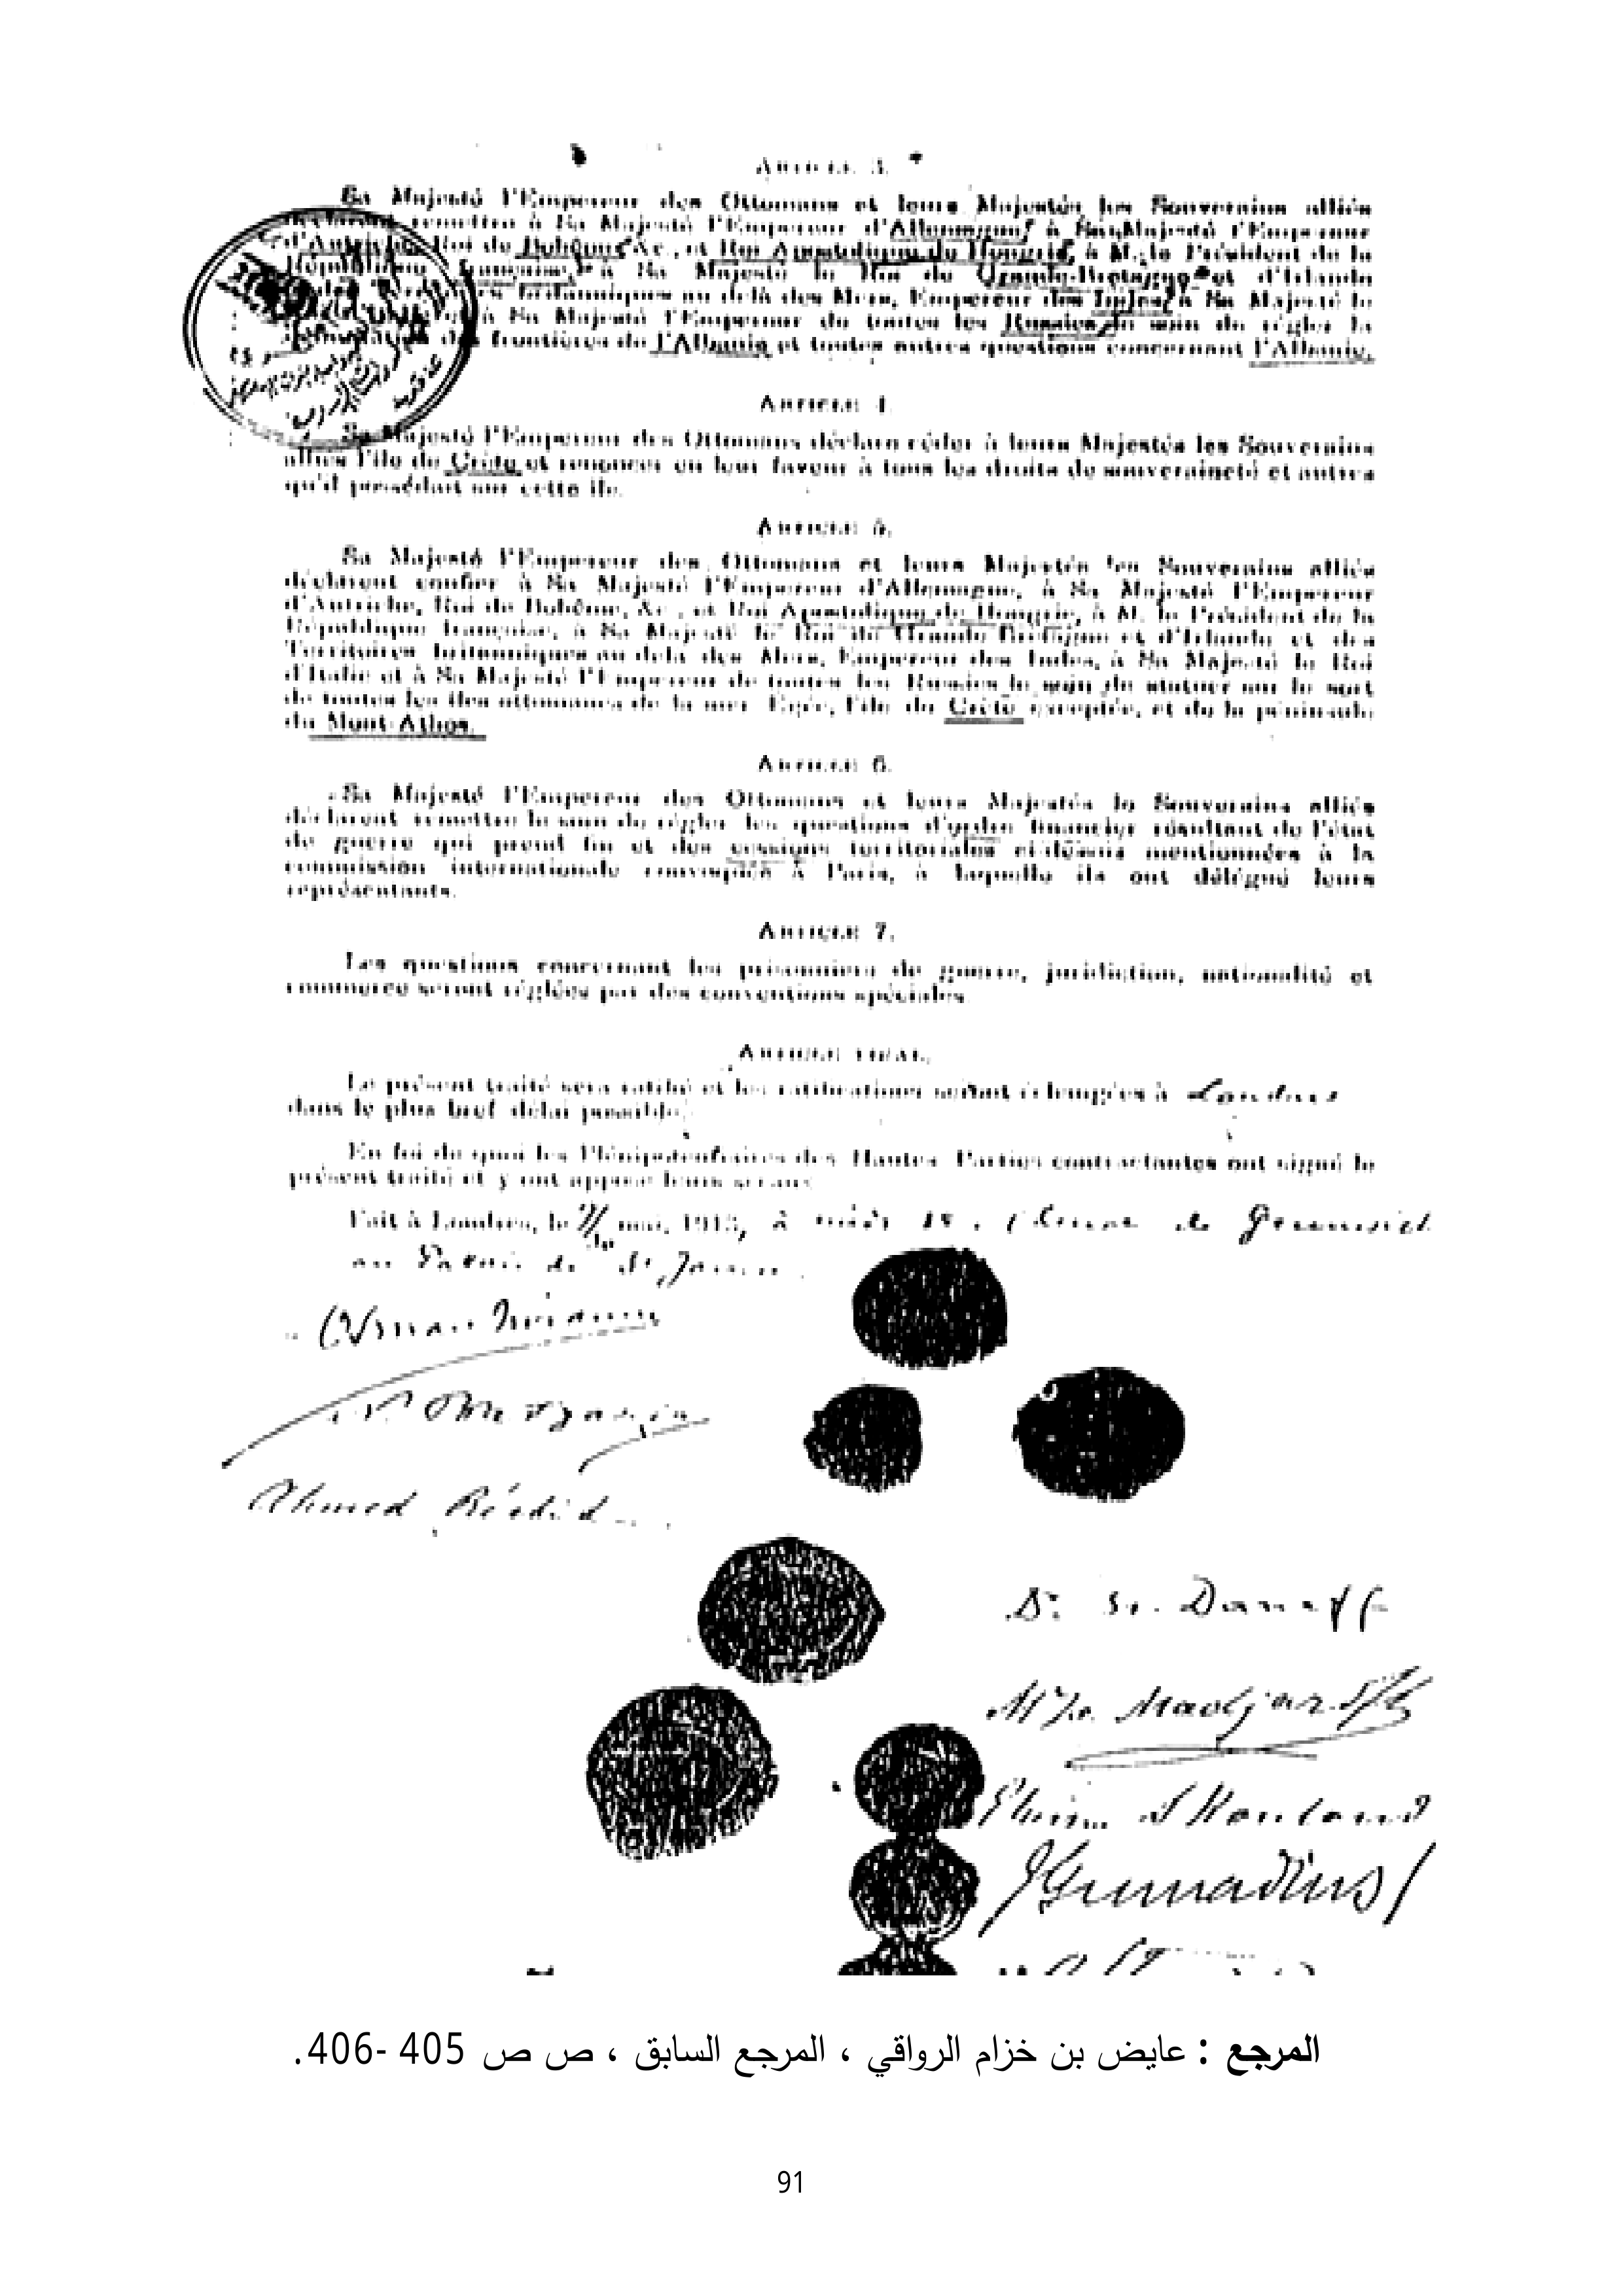 ARTICLE 3.
Sa Majesté l'Empereur des Ottomans et leurs Majestés les Souverains alliés
déclarent remettre à Sa Majesté l'Empereur d'Allemagne, à Sa Majesté l'Empereur
d'Autriche, Roi de Bohême, &c., et Roi Apostolique de Hongrie, à M. le Président de la
République française, à Sa Majesté le Roi de Grande-Bretagne et d'Irlande
Territoires britanniques au delà des Mers, Empereur des Indes, à Sa Majesté le
à Sa Majesté l'Empereur de toutes les Russies le soin de régler la
délimitation des frontières de l'Albanie et toutes autres questions concernant l'Albanie.
ARTICLE 4.
Sa Majesté l'Empereur des Ottomans déclare céder à leurs Majestés les Souverains
alliés l'île de Crète et renoncer en leur faveur à tous les droits de souveraineté et autres
qu'il possédait sur cette île.
ARTICLE 5.
Sa Majesté l'Empereur des Ottomans et leurs Majestés les Souverains alliés
déclarent confier à Sa Majesté l'Empereur d'Allemagne, à Sa Majesté l'Empereur
d'Autriche, Roi de Bohême, &c., et Roi Apostolique de Hongrie, à M. le Président de la
République française, à Sa Majesté le Roi de Grande Bretagne et d'Irlande et des
Territoires britanniques au delà des Mers, Empereur des Indes, à Sa Majesté le Roi
d'Italie et à Sa Majesté l'Empereur de toutes les Russies le soin de statuer sur le sort
de toutes les îles ottomanes de la mer Egée, l'île de Crète exceptée, et de la péninsule
du Mont-Athos.
ARTICLE 6.
Sa Majesté l'Empereur des Ottomans et leurs Majestés le Souverains alliés
déclarent remettre le soin de régler les questions d'ordre financier résultant de l'état
de guerre qui prend fin et des cessions territoriales ci-dessus mentionnées à la
commission internationale convoquée à Paris, à laquelle ils ont délégué leurs
représentants.
ARTICLE 7.
Les questions concernant les prisonniers de guerre, juridiction, nationalité et
commerce seront réglées par des conventions spéciales.
ARTICLE FINAL.
Le présent traité sera ratifié et les ratifications seront échangées à Londres
dans le plus bref délai possible.
En foi de quoi les Plénipotentiaires des Hautes Parties contractantes ont signé le
présent traité et y ont apposé leurs sceaux.
Fait à Londres, le 17/30 mai, 1913, à midi de Greenwich
au Palais de St James.
Osman Nizamy
Ahmed Réchid
Dr. St. Daneff
Madjaroff
J Gennadius
المرجع : عايض بن خزام الرواقي ، المرجع السابق ، ص ص 405 -406.
91